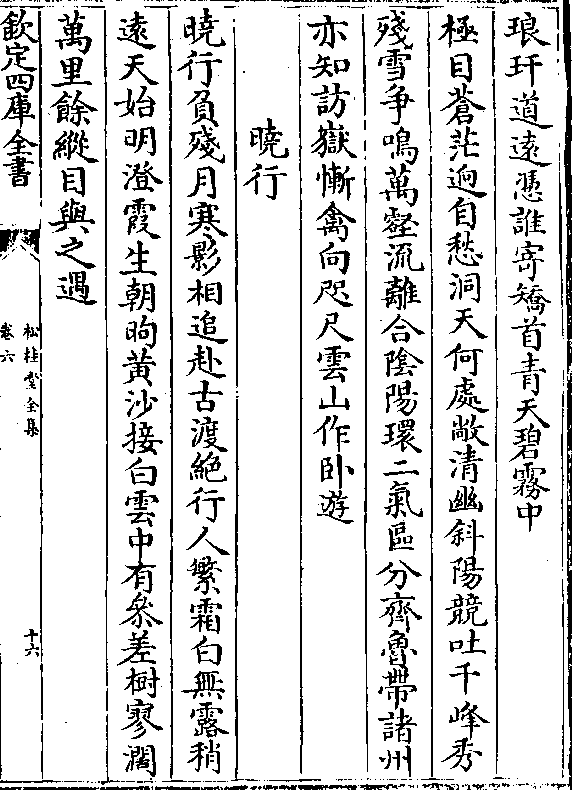 琅玕道遠憑誰寄矯首青天碧霧中
極目蒼茫逈自愁洞天何處敞清幽斜陽競吐千峰秀
殘雪爭鳴萬壑流離合陰陽環二氣區分齊魯帶諸州
亦知訪嶽慚禽向咫尺雲山作卧遊
曉行
曉行負殘月寒影相追赴古渡絶行人繁霜白無露稍
遠天始明澄霞生朝昫黃沙接白雲中有叅差樹寥濶
萬里餘縱目與之遇
欽定四庫全書
松桂堂全集
卷六
十六